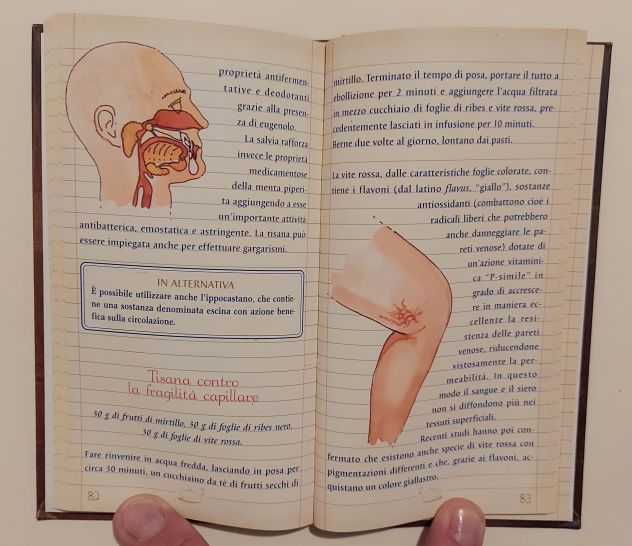 proprietà antifermen-
tative e deodoranti
grazie alla presen-
za di eugenolo.
La salvia rafforza
invece le proprietà
medicamentose
della menta piperi-
ta aggiungendo a esse
un'importante attività
antibatterica, emostatica e astringente. La tisana può
essere impiegata anche per effettuare gargarismi.
IN ALTERNATIVA
È possibile utilizzare anche l'ippocastano, che contie-
ne una sostanza denominata escina con azione bene-
fica sulla circolazione.
Tisana contro
la fragilità capillare
30 g di frutti di mirtillo, 30 g di foglie di ribes nero,
30 g di foglie di vite rossa.
Fare rinvenire in acqua fredda, lasciando in posa per
circa 30 minuti, un cucchiaino da tè di frutti secchi di
82
mirtillo. Terminato il tempo di posa, portare il tutto a
ebollizione per 2 minuti e aggiungere l'acqua filtrata
in mezzo cucchiaio di foglie di ribes e vite rossa, pre-
cedentemente lasciati in infusione per 10 minuti.
Berne due volte al giorno, lontano dai pasti.
La vite rossa, dalle caratteristiche foglie colorate, con-
tiene i flavoni (dal latino flavus, "giallo"), sostanze
antiossidanti (combattono cioè i
radicali liberi che potrebbero
anche danneggiare le pa-
reti venose) dotate di
un'azione vitamini-
ca "P-simile" in
grado di accresce-
re in maniera ec-
cellente la resi-
stenza delle pareti
venose, riducendone
vistosamente la per-
meabilità. In questo
modo il sangue e il siero
non si diffondono più nei
tessuti superficiali.
Recenti studi hanno poi con-
fermato che esistono anche specie di vite rossa con
pigmentazioni differenti e che, grazie ai flavoni, ac-
quistano un colore giallastro.
83